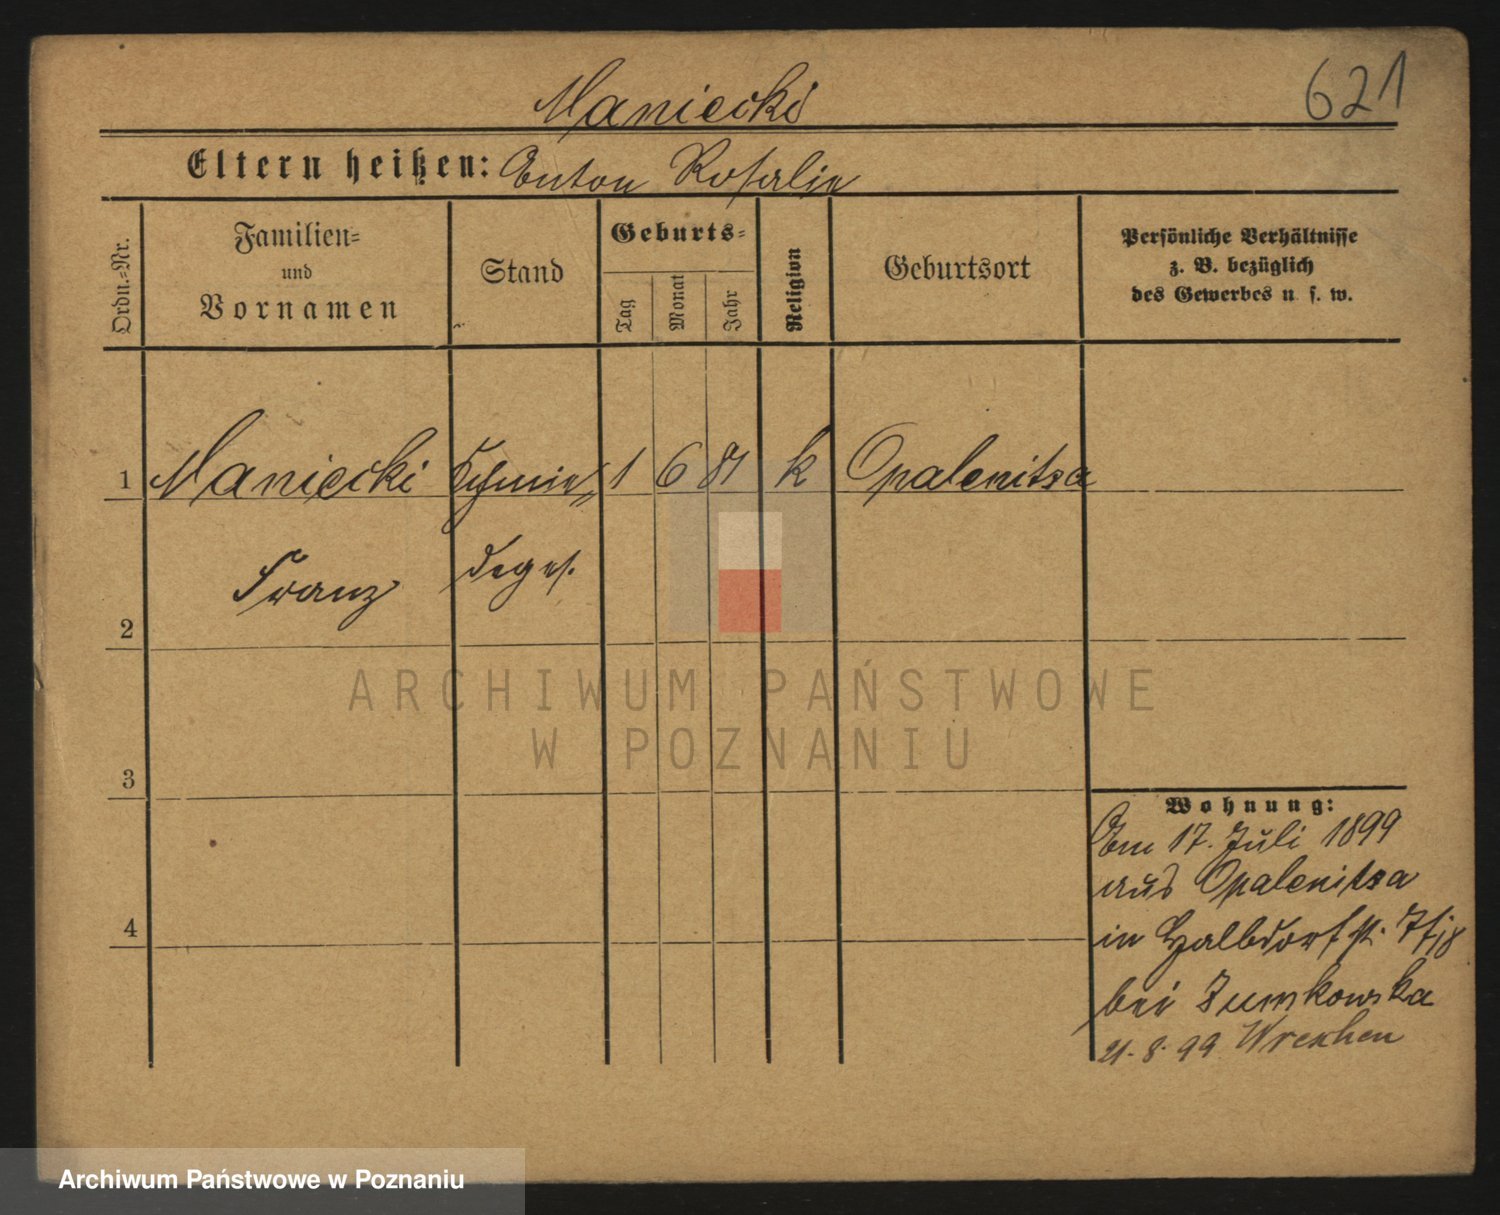 Maniecki
621
Eltern heißen: Anton Rosalie
Ordn.=Nr.
Familien=
und
Vornamen
Stand
Geburts=
Tag
Monat
Jahr
Religion
Geburtsort
Persönliche Verhältnisse
z. B. bezüglich
des Gewerbes u. s. w.
1 Maniecki Schmie= 1 6 81 k Opalenitza
Franz deges.
2
ARCHIWUM PAŃSTWOWE
W POZNANIU
3
Wohnung:
Am 17. Juli 1899
aus Opalenitza
4
in Halbdorfstr.
bei Zumkowska
21. 8. 99 Wreschen
Archiwum Państwowe w Poznaniu